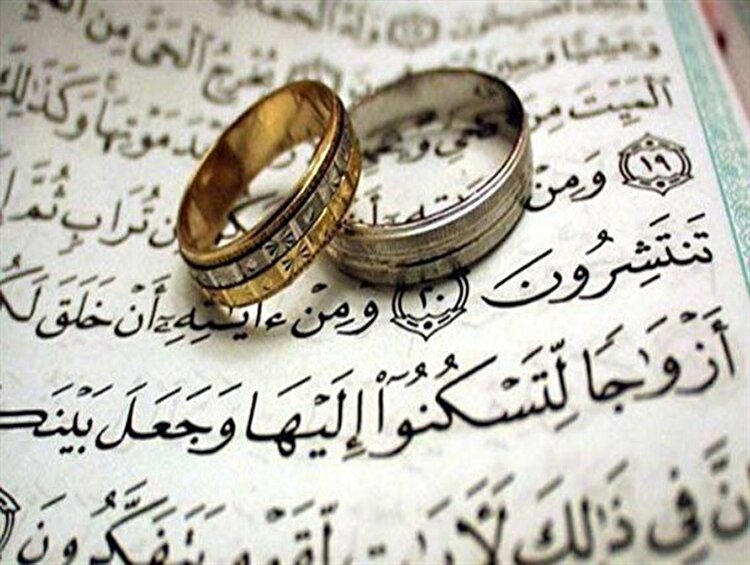 وَلَهُ الْحَمْدُ
وَعَشِيًّا وَحِينَ يُخْرِجُ الْحَيَّ مِنَ
الْمَيِّتَ مِنَ مَوْتِهَا وَكَذَٰلِكَ
١٩ وَمِنْ تُرَابٍ ثُمَّ
تَنتَشِرُونَ ٢٠ وَمِنْ ءَايَٰتِهِۦٓ أَنْ خَلَقَ لَكُ
أَزْوَٰجًا لِّتَسْكُنُوٓا۟ إِلَيْهَا وَجَعَلَ بَيْنَك
نَّ فِى ذَٰلِكَ لَءَايَٰتٍ لِّقَوْمٍ يَتَفَكَّرُونَ